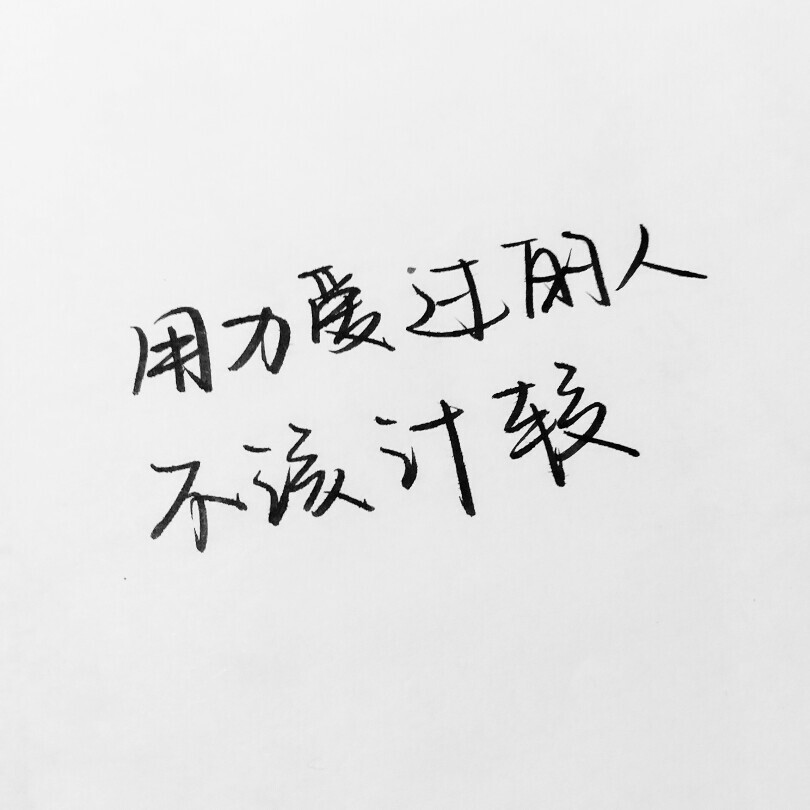 用力爱过的人
不该计较